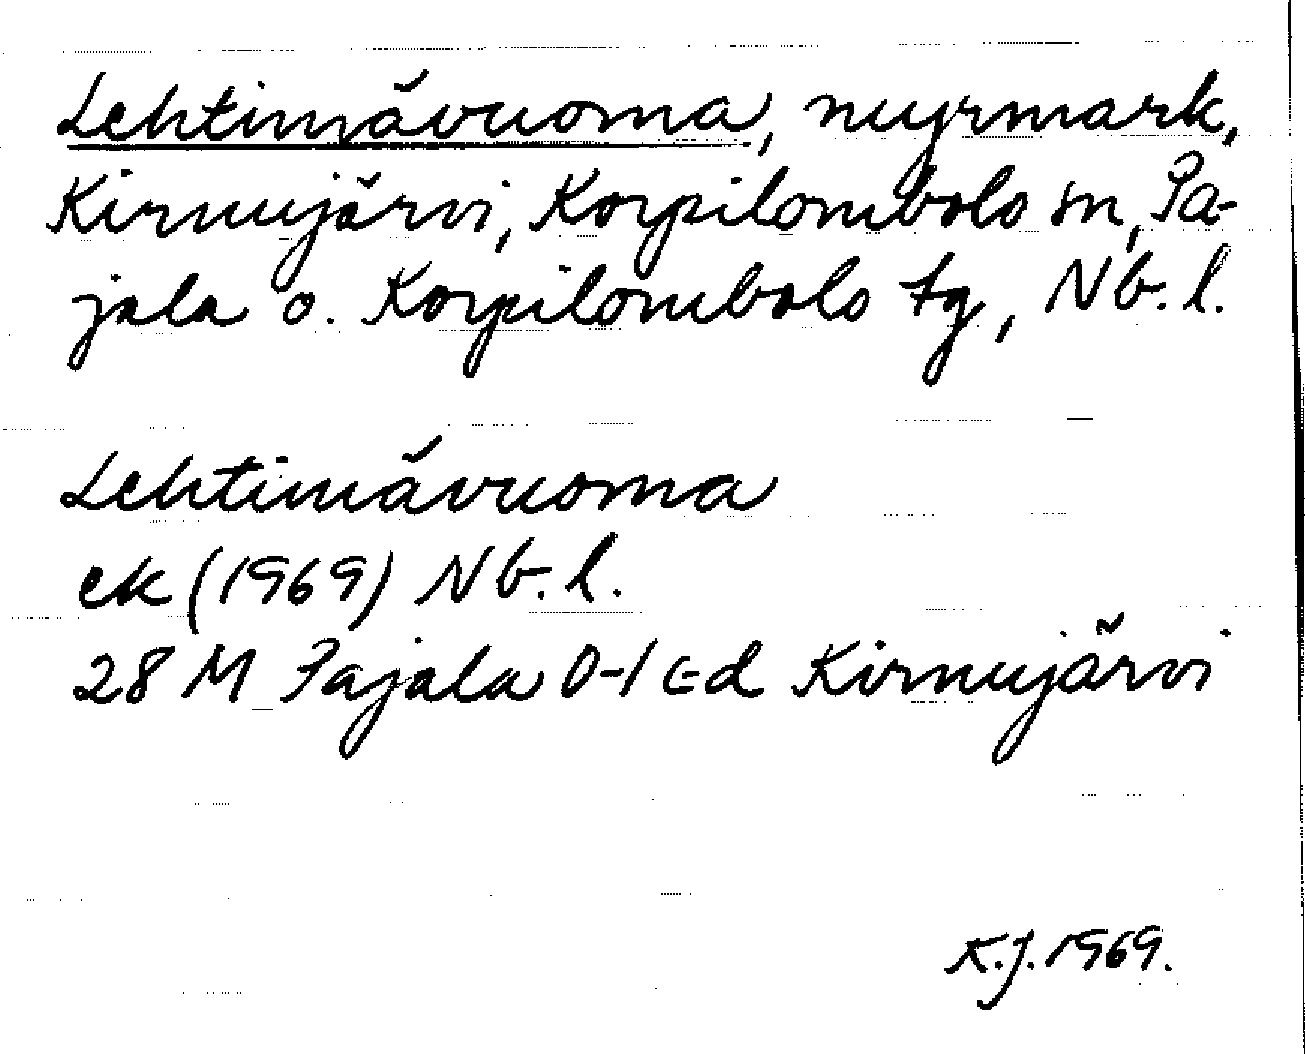 Lehtimävuoma, myrmark,
Kirnujärvi, Korpilombolo sn, Pa-
jala o. Korpilombolo tg, Nb. l.
Lehtimävuoma
ek (1969) Nb. l.
28 M Pajala 0-1 c-d Kirnujärvi
K.J. 1969.